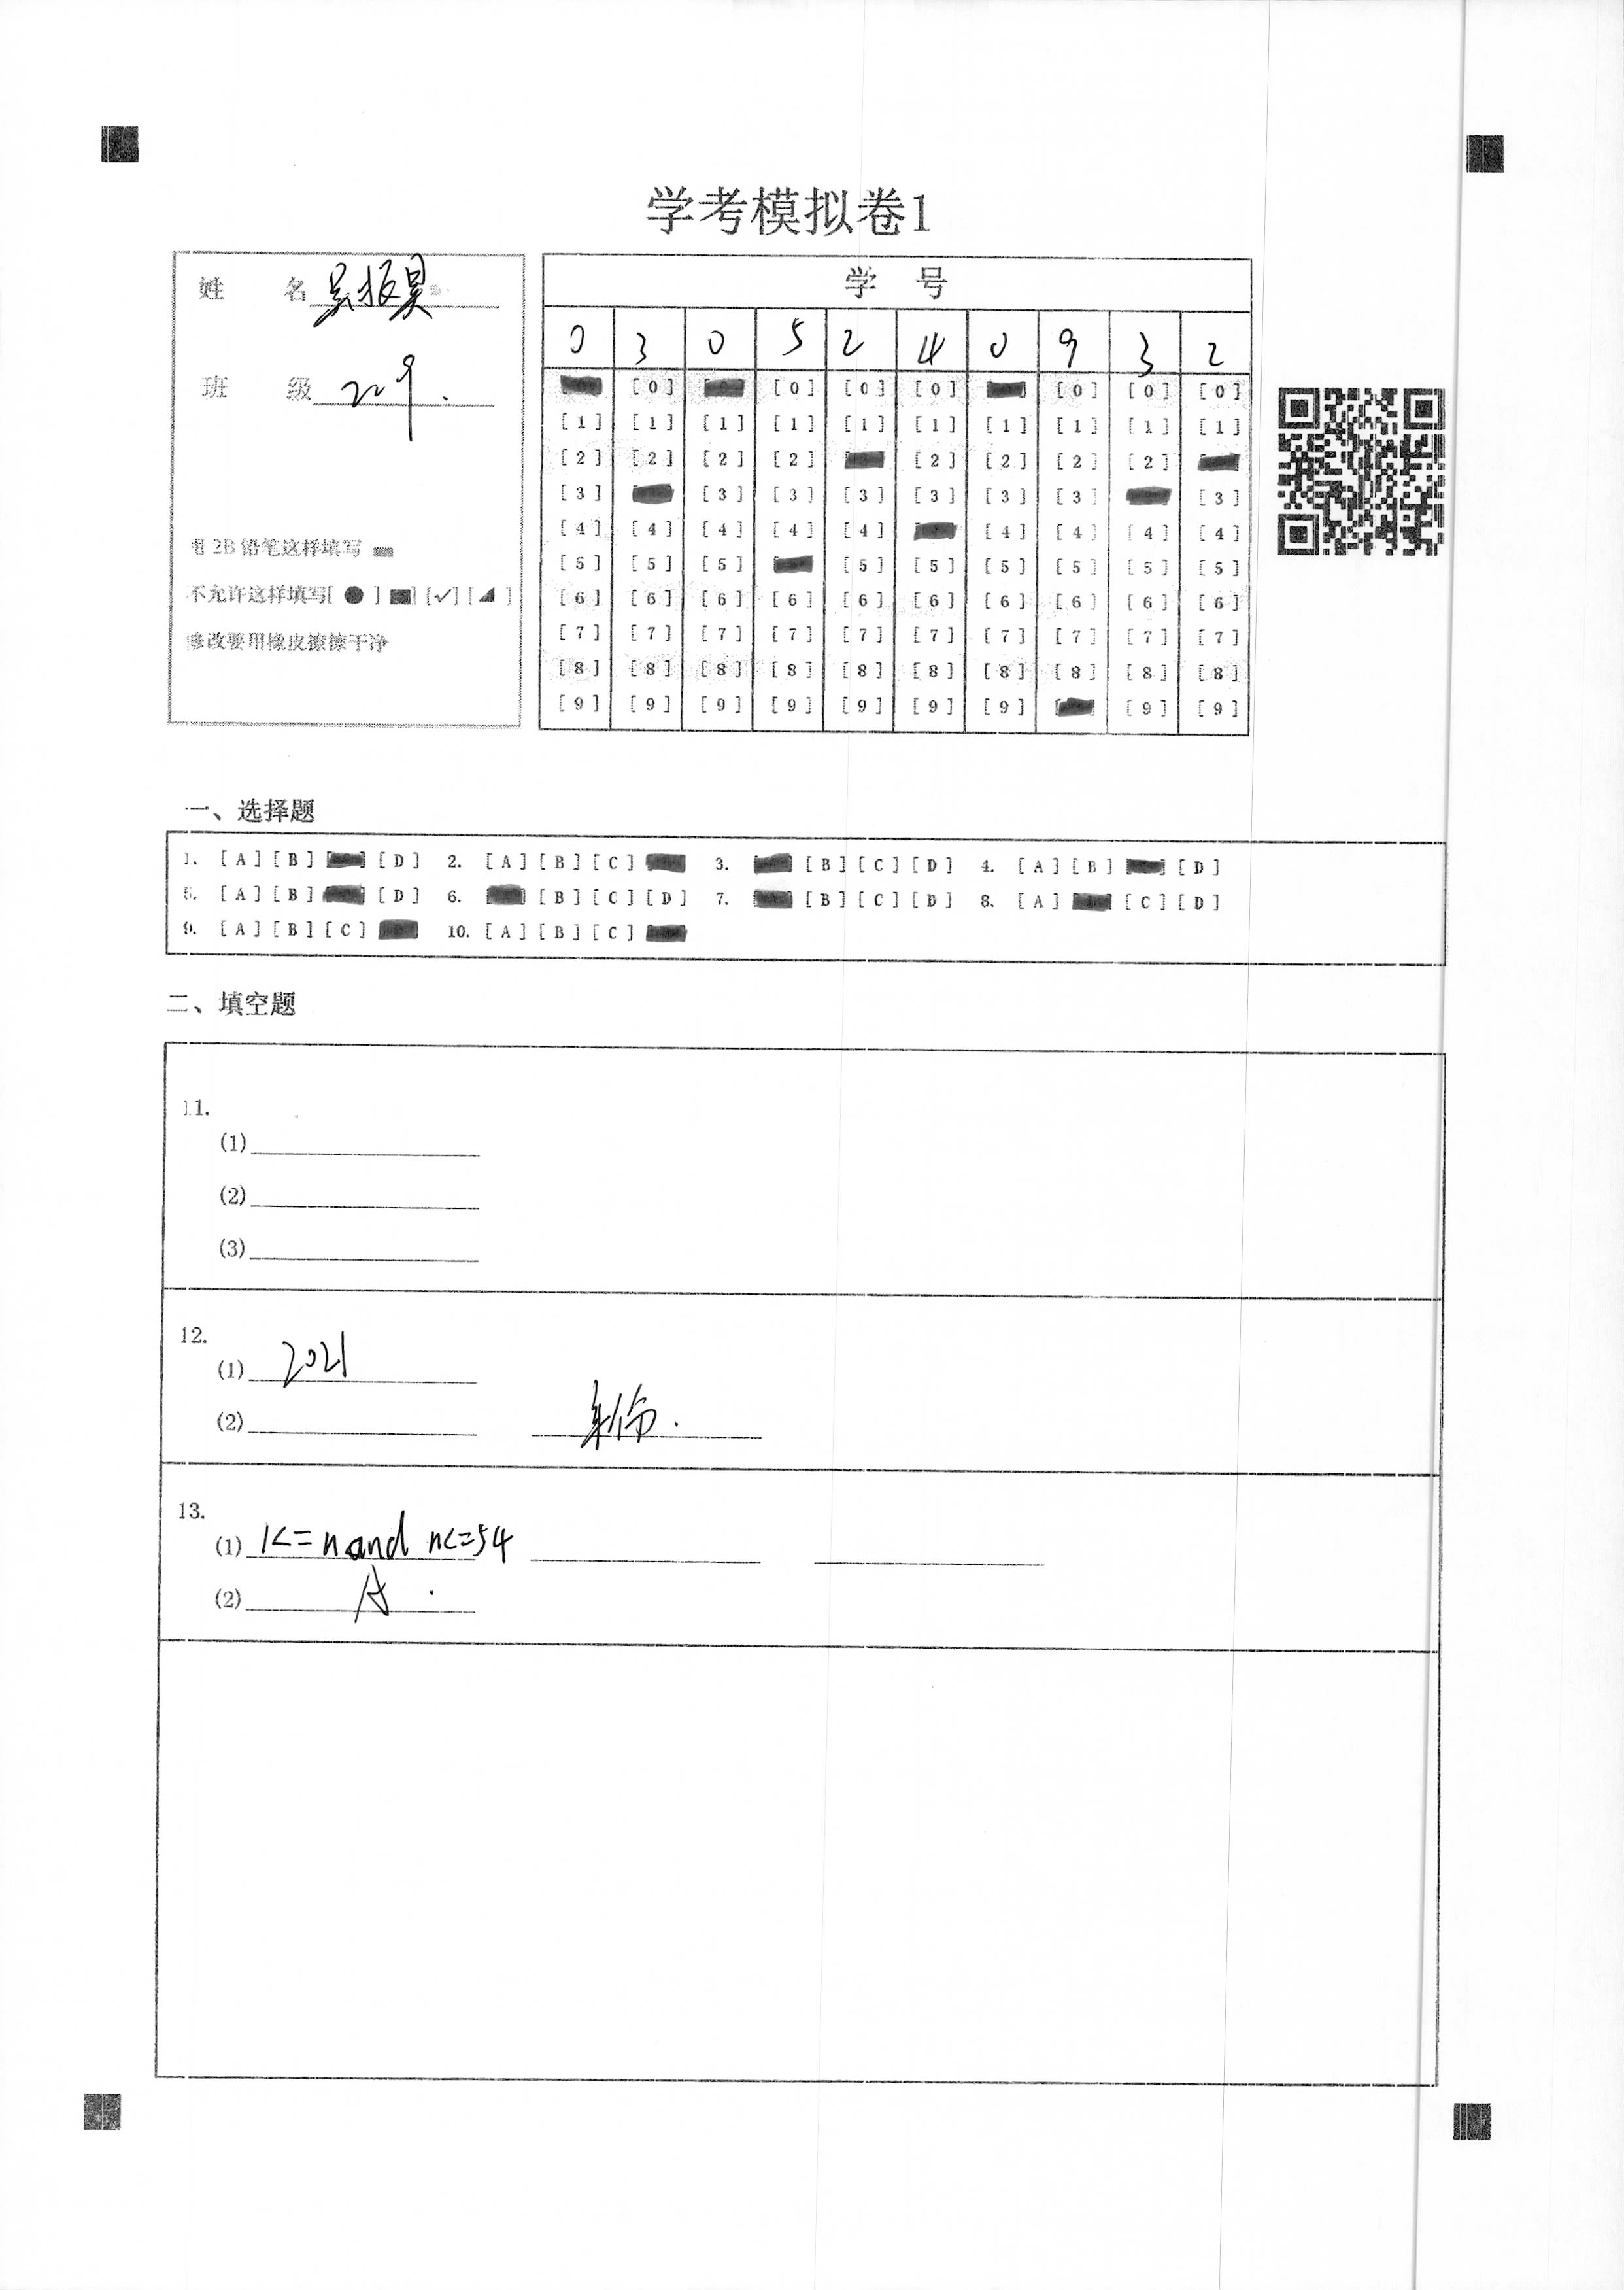 学考模拟卷1
姓 名
班 级 209.
用 2B 铅笔这样填写
不允许这样填写[ ● ] [✓] [ ◢ ]
修改要用橡皮擦擦干净
学 号
0 3 0 5 2 4 0 9 3 2
[0] [0] [0] [0] [0] [0] [0]
[1] [1] [1] [1] [1] [1] [1] [1] [1] [1]
[2] [2] [2] [2] [2] [2] [2] [2]
[3] [3] [3] [3] [3] [3] [3] [3]
[4] [4] [4] [4] [4] [4] [4] [4] [4]
[5] [5] [5] [5] [5] [5] [5] [5] [5]
[6] [6] [6] [6] [6] [6] [6] [6] [6] [6]
[7] [7] [7] [7] [7] [7] [7] [7] [7] [7]
[8] [8] [8] [8] [8] [8] [8] [8] [8] [8]
[9] [9] [9] [9] [9] [9] [9] [9] [9]
一、选择题
1. [A] [B] [D] 2. [A] [B] [C] 3. [B] [C] [D] 4. [A] [B] [D]
5. [A] [B] [D] 6. [B] [C] [D] 7. [B] [C] [D] 8. [A] [C] [D]
9. [A] [B] [C] 10. [A] [B] [C]
二、填空题
11.
(1)
(2)
(3)
12.
(1) 2021
(2)
13.
(1) K=n and n<=54
(2) A .